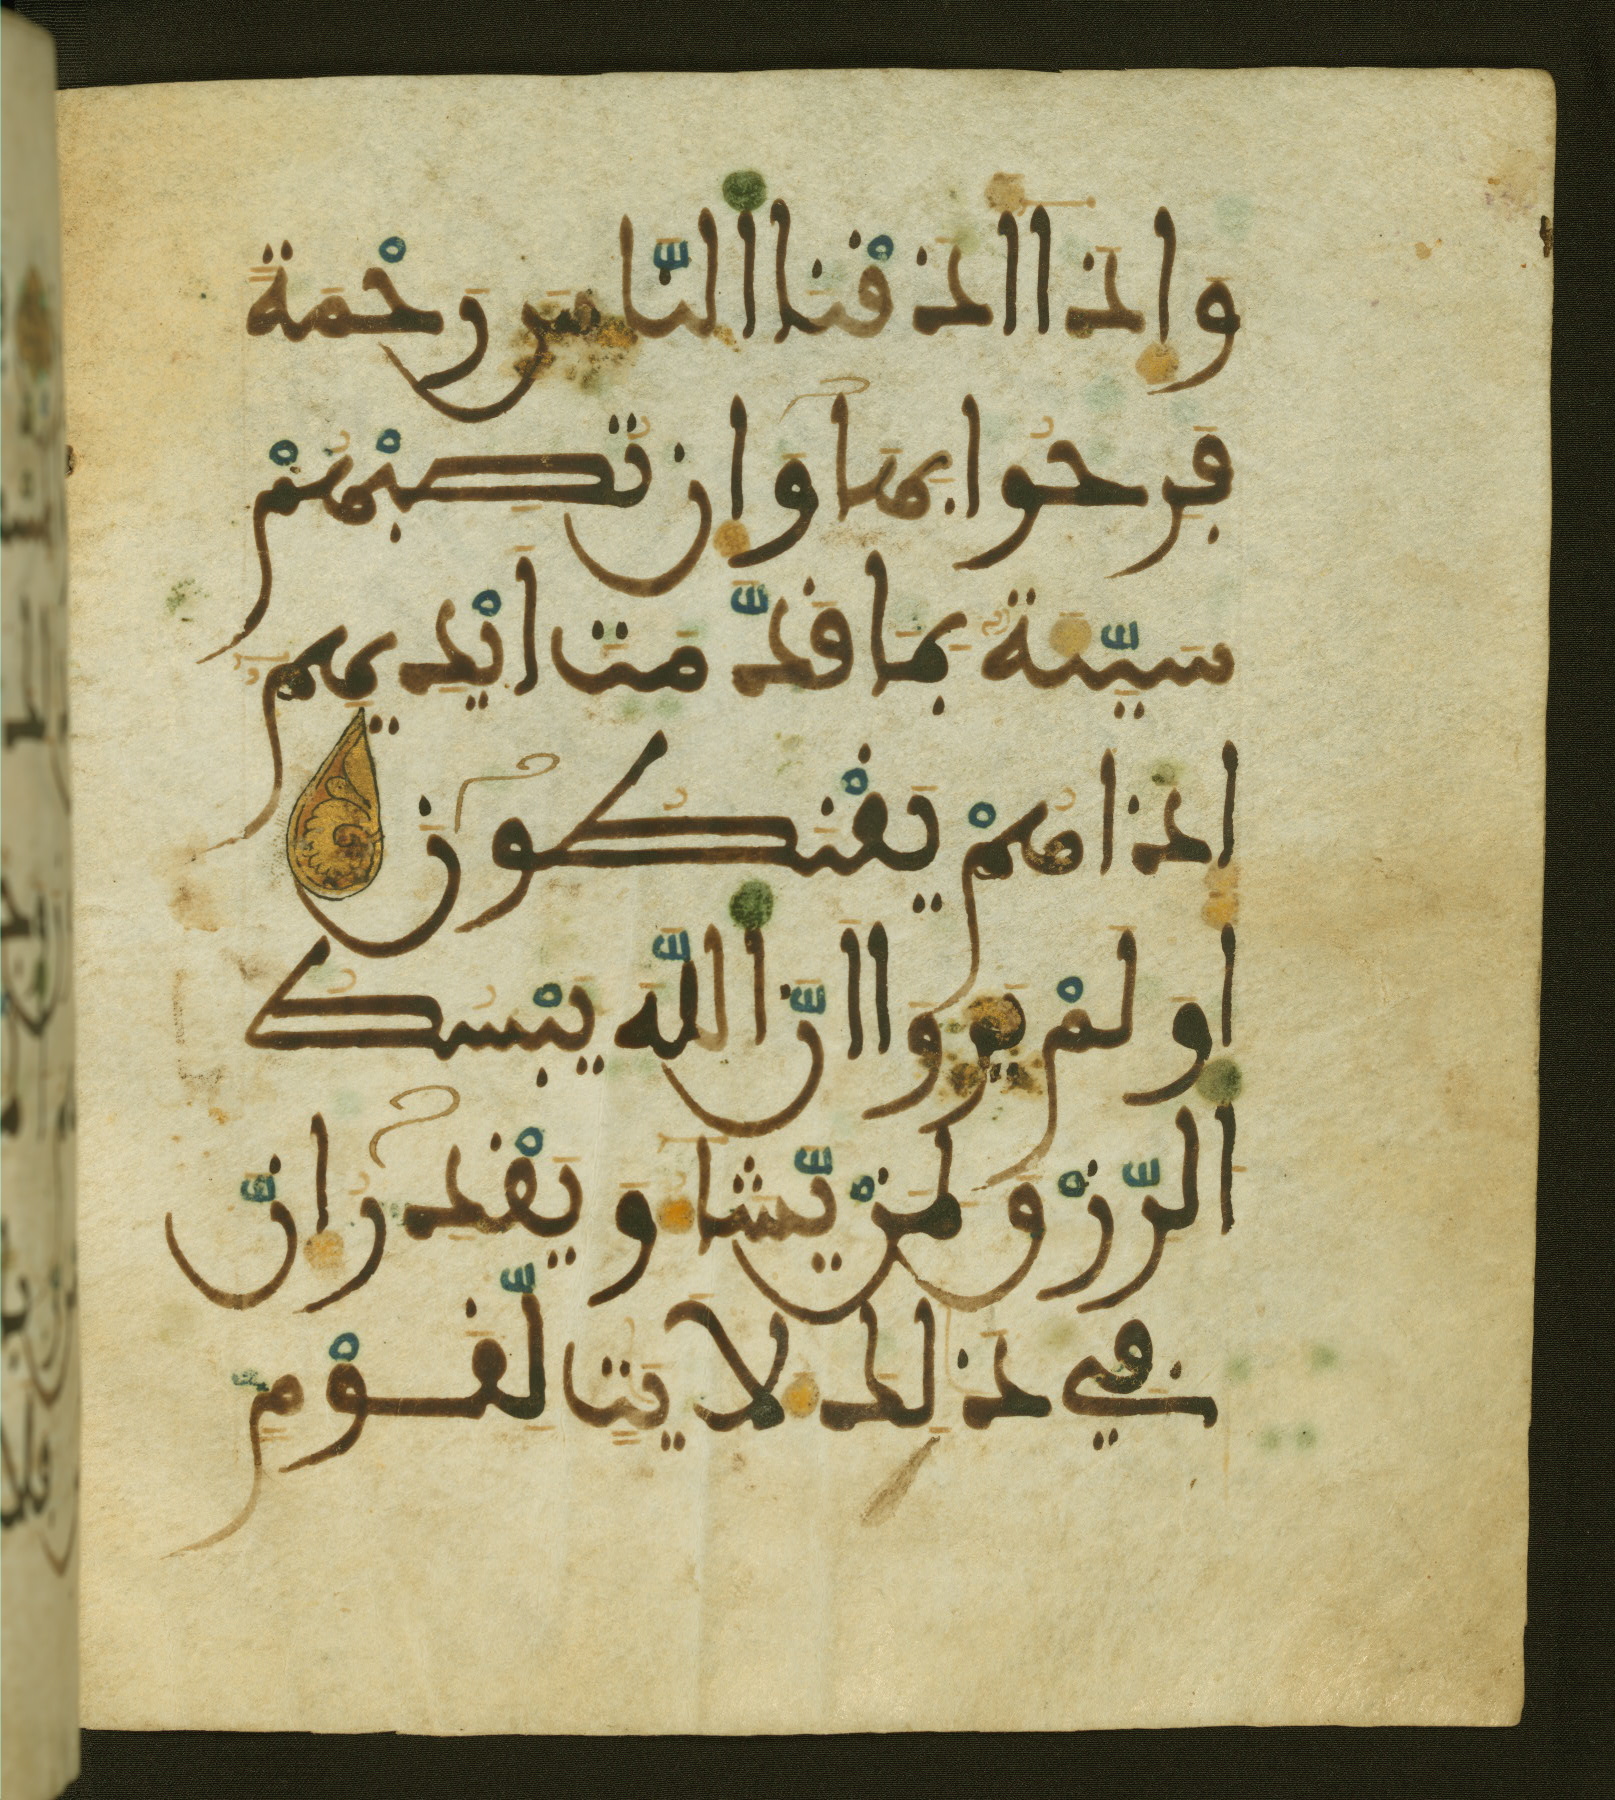 وَإِذَا أَذَقْنَا النَّاسَ رَحْمَةً
فَرِحُوا بِهَا وَإِن تُصِبْهُمْ
سَيِّئَةٌ بِمَا قَدَّمَتْ أَيْدِيهِمُ
إِذَا هُمْ يَقْنَطُونَ
أَوَلَمْ يَرَوْا أَنَّ اللَّهَ يَبْسُطُ
الرِّزْقَ لِمَنْ يَّشَاءُ وَيَقْدِرُ إِنَّ
فِي ذَلِكَ لَآيَاتٍ لِّقَوْمٍ